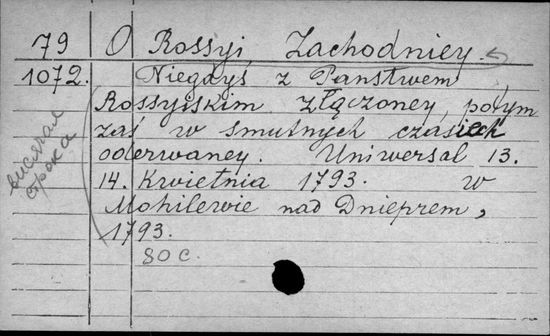 79 O Rossyi Zachodniey
1072. Niegdyś z Państwem
Rossyiskim złączoney, potym
zaś w smutnych czasiech
oderwaney. Uniwersał 13.
14. Kwietnia 1793. w
Mohilewie nad Dnieprem,
1793.
80 с.
висячая
строка